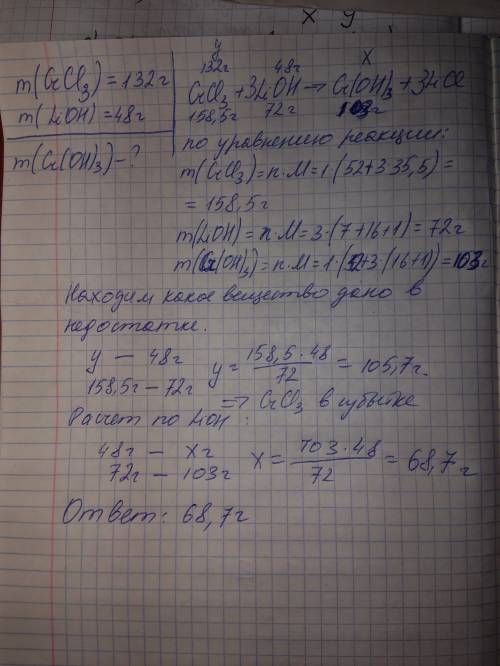 x y
m(CrCl₃)=132г
m(LiOH)=48г
m(Cr(OH)₃)-?
y x
132г 48г
CrCl₃+3LiOH→Cr(OH)₃+3LiCl
158,5г 72г 103г
по уравнению реакции:
m(CrCl₃)=n·M=1·(52+3·35,5)=
=158,5г
m(LiOH)=n·M=3·(7+16+1)=72г
m(Cr(OH)₃)=n·M=1·(52+3·(16+1))=103г
Находим какое вещество дано в
недостатке.
y — 48г
158,5г — 72г
y = 158,5·48 / 72 = 105,7г.
⇒ CrCl₃ в
Расчет по LiOH:
48г — xг
72г — 103г
x = 103·48 / 72 = 68,7г
Ответ: 68,7г